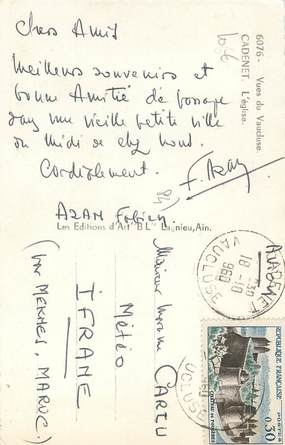 6076 - Vues du Vaucluse.
CADENET. L'église.
10 €
Chers Amis
Meilleurs souvenirs et
bonne Amitié de passage
dans une vieille petite ville
du Midi de chez nous.
Cordialement.
F. Azan
84
AZAN Fabien
Les Editions d'Art "BL" Lagnieu, Ain.
Monsieur
CARLU
Météo
IFRANE
(par MEKNES, MAROC)
CADENET
18-10
1960
VAUCLUSE
REPUBLIQUE FRANÇAISE
POSTES
0,30
CHATEAU DE FOUGERES
VAUCLUSE